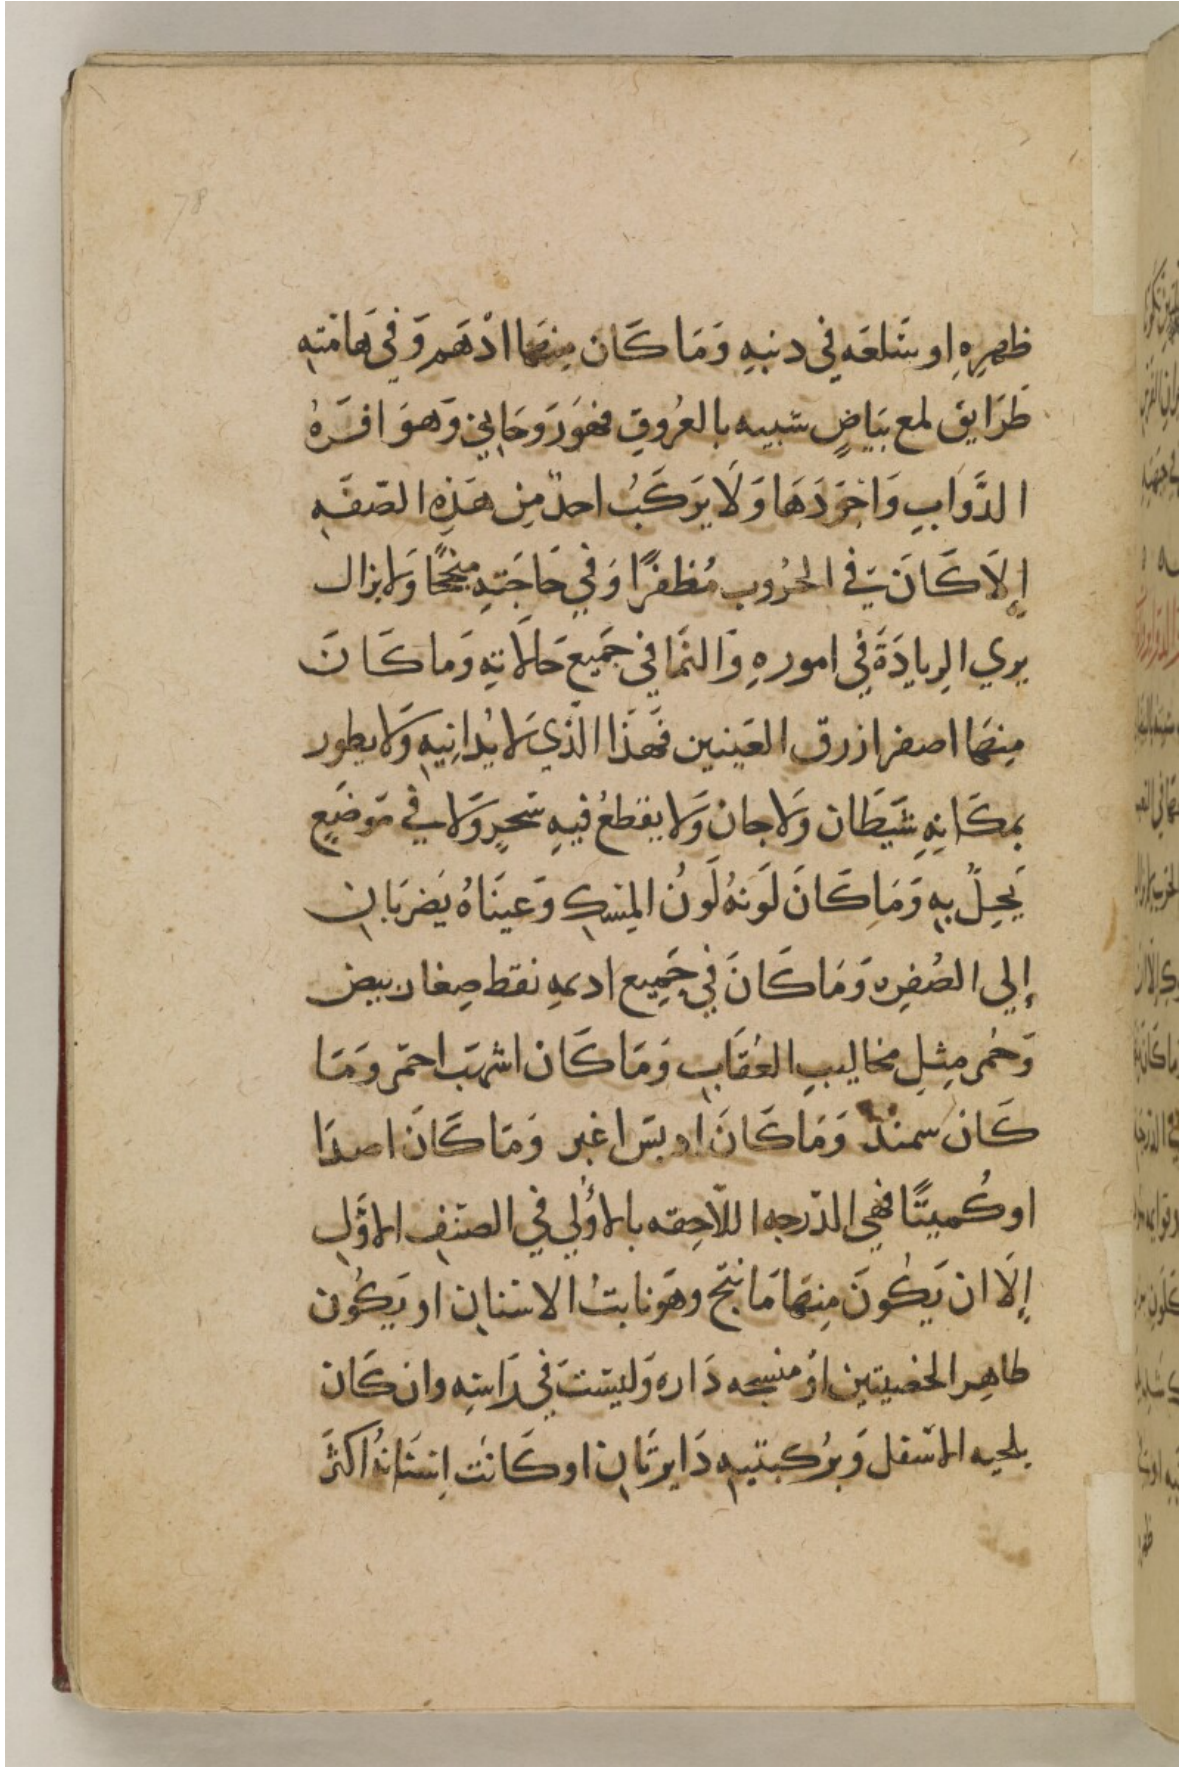 78
ظهرِهِ او شَلعَه في دنبهِ وَمَا كَان مِنهَا ادْهَم وَفي هَامَتهِ
طَرَايق لمع بَيَاضٍ شبيه بالعُروقِ فهوَ رَوحَاني وَهوَ افرَهُ
الدَّوَابِ وَاجوَدَهَا وَلَا يَركَبُ احدٌ مِن هَذِه الصّفَهِ
إلَا كَانَ في الحرُوب مُظفرًا وَفي حَاجَتهِ مُنجحًا وَلا يزال
يري الزِيادَةَ في امورهِ وَالنمَا في جَميع حَالَاتِهِ وَما كَانَ
مِنهَا اصفر ازرق العَينين فَهَذَا الَّذي لَا يُدَانِيهِ وَلا يطور
بمكَانِهِ شَيَطَان وَلا جان وَلا يقطعُ فيهِ سَحرٍ وَلا في مَوضَعٍ
يَحِلُّ بهِ وَمَا كَانَ لَونهُ لَونُ المِسكِ وَعينَاهُ يَضربَانِ
إلي الصُفرِه وَمَا كَانَ في جَمِيع اديمهِ نقط صِغار بيض
وَحُمر مِثلِ مخاليبِ العُقَابِ وَمَا كَان اشهَب احمَر وَمَا
كَان سمندٌ وَمَا كَانَ اد بسَ اغبر وَمَا كَانَ اصدَا
او كُميتًا فهي الدّرجه اللاحِقه بالأولي في الصّنفِ الاوّلِ
إلَا ان يَكونَ مِنهَا مَا نتج وهوَ نابتُ الاسَنانِ او يَكُون
ظاهِر الخصيتين اوْ منسجه دَاره وَليسَتَ في رَاسَهِ وان كَان
بلحيه الاسَفل وَبرُكبتيهِ دَايرَتَانِ او كَانَت اِسَنَانهُ اكثَرَ